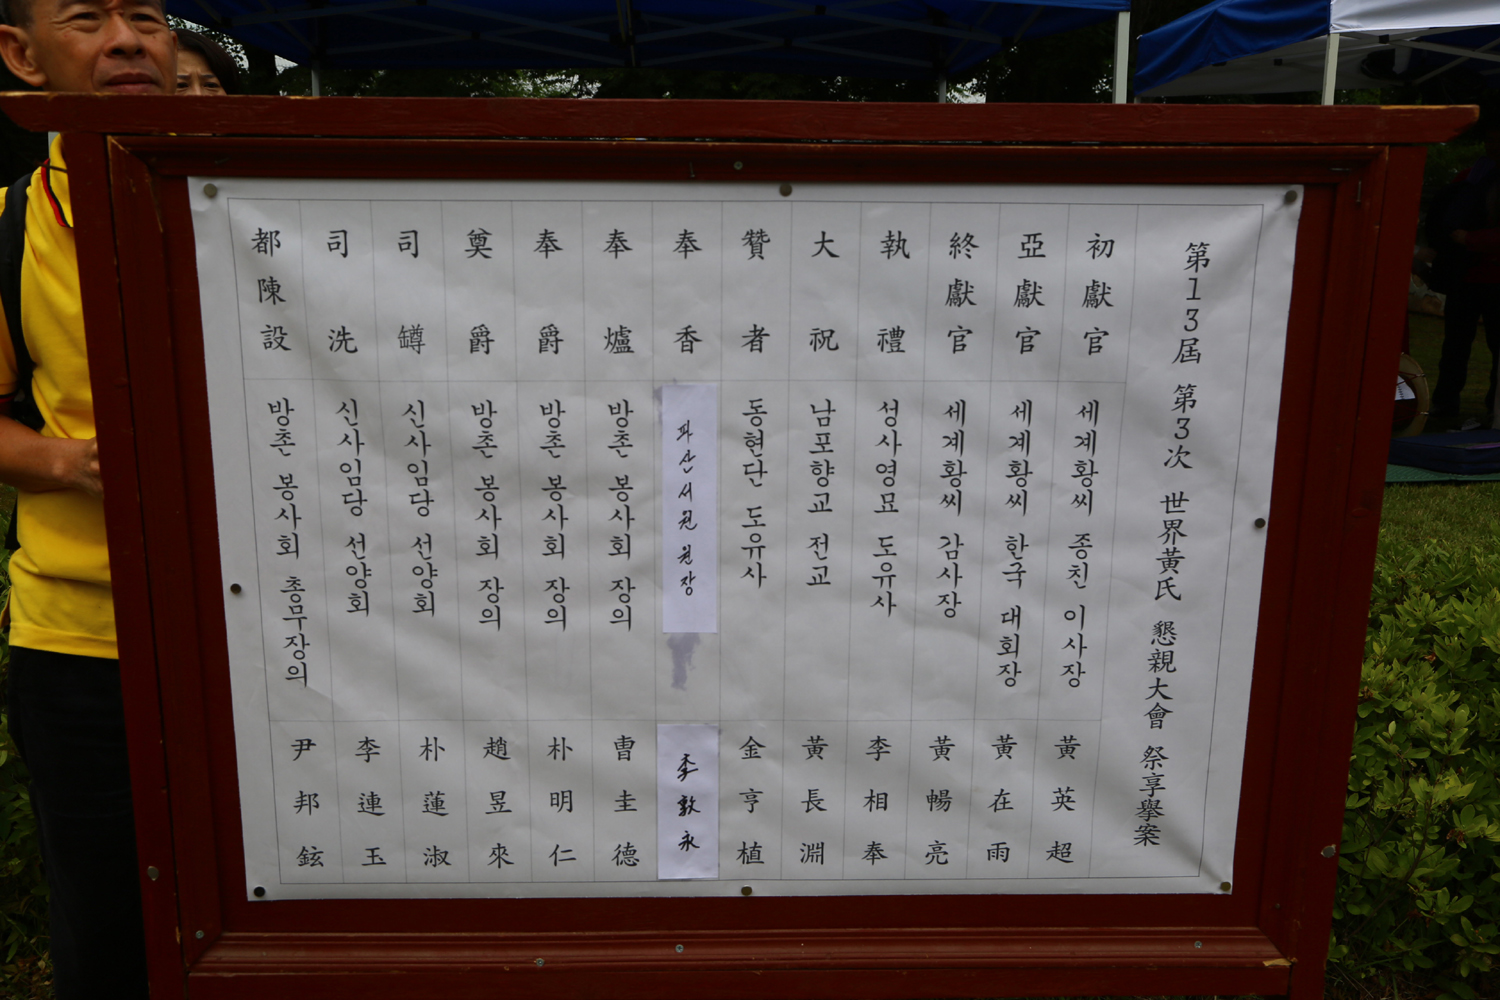 第13屆 第3次 世界黃氏 懇親大會 祭享擧案
初獻官 세계황씨 종친 이사장 黃英超
亞獻官 세계황씨 한국 대회장 黃在雨
終獻官 세계황씨 감사장 黃暢亮
執禮 성사영묘 도유사 李相奉
大祝 남포향교 전교 黃長淵
贊者 동현단 도유사 金亨植
奉香 파산서원 원장 李敦永
奉爐 방촌 봉사회 장의 曺圭德
奉爵 방촌 봉사회 장의 朴明仁
奠爵 방촌 봉사회 장의 趙昱來
司罇 신사임당 선양회 朴蓮淑
司洗 신사임당 선양회 李連玉
都陳設 방촌 봉사회 총무장의 尹邦鉉